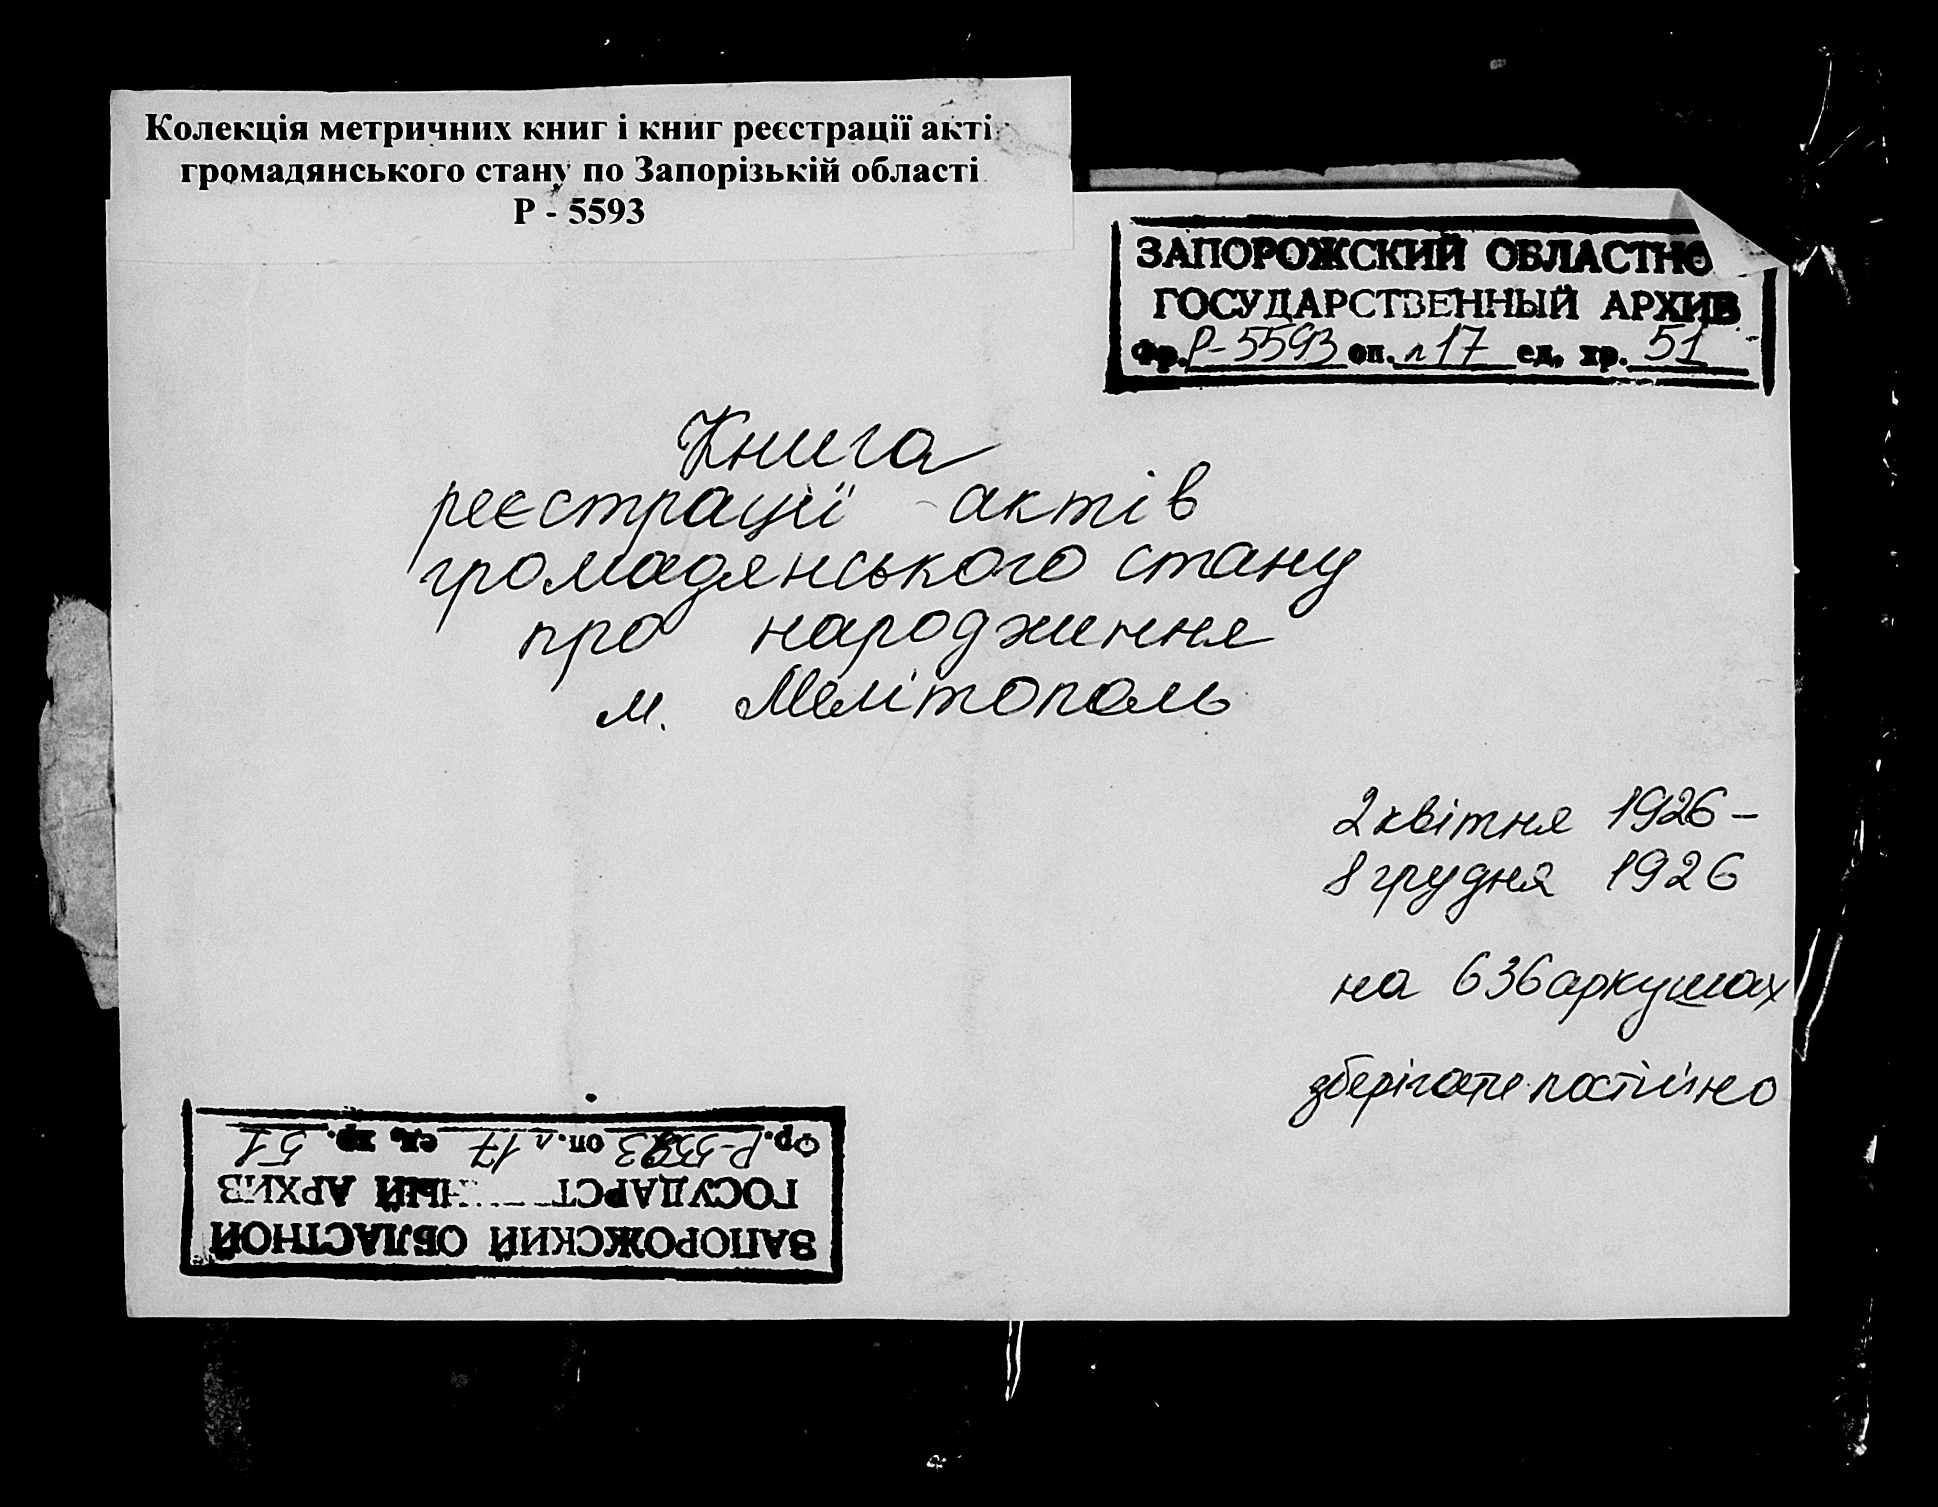 Колекція метричних книг і книг реєстрації акті
громадянського стану по Запорізькій області
Р - 5593
ЗАПОРОЖСКИЙ ОБЛАСТНО
ГОСУДАРСТВЕННЫЙ АРХИВ
Фр. Р-5593 оп. л17 ед. хр. 51
Книга
реєстрації актів
громадянського стану
про народження
м. Мелітополь
2 квітня 1926 –
8 грудня 1926
на 636 аркушах
зберігати постійно
ЗАПОРОЖСКИЙ ОБЛАСТНОЙ
ГОСУДАРСТ НЫЙ АРХИВ
Фр. Р-5593 оп. л17 ед. хр. 51